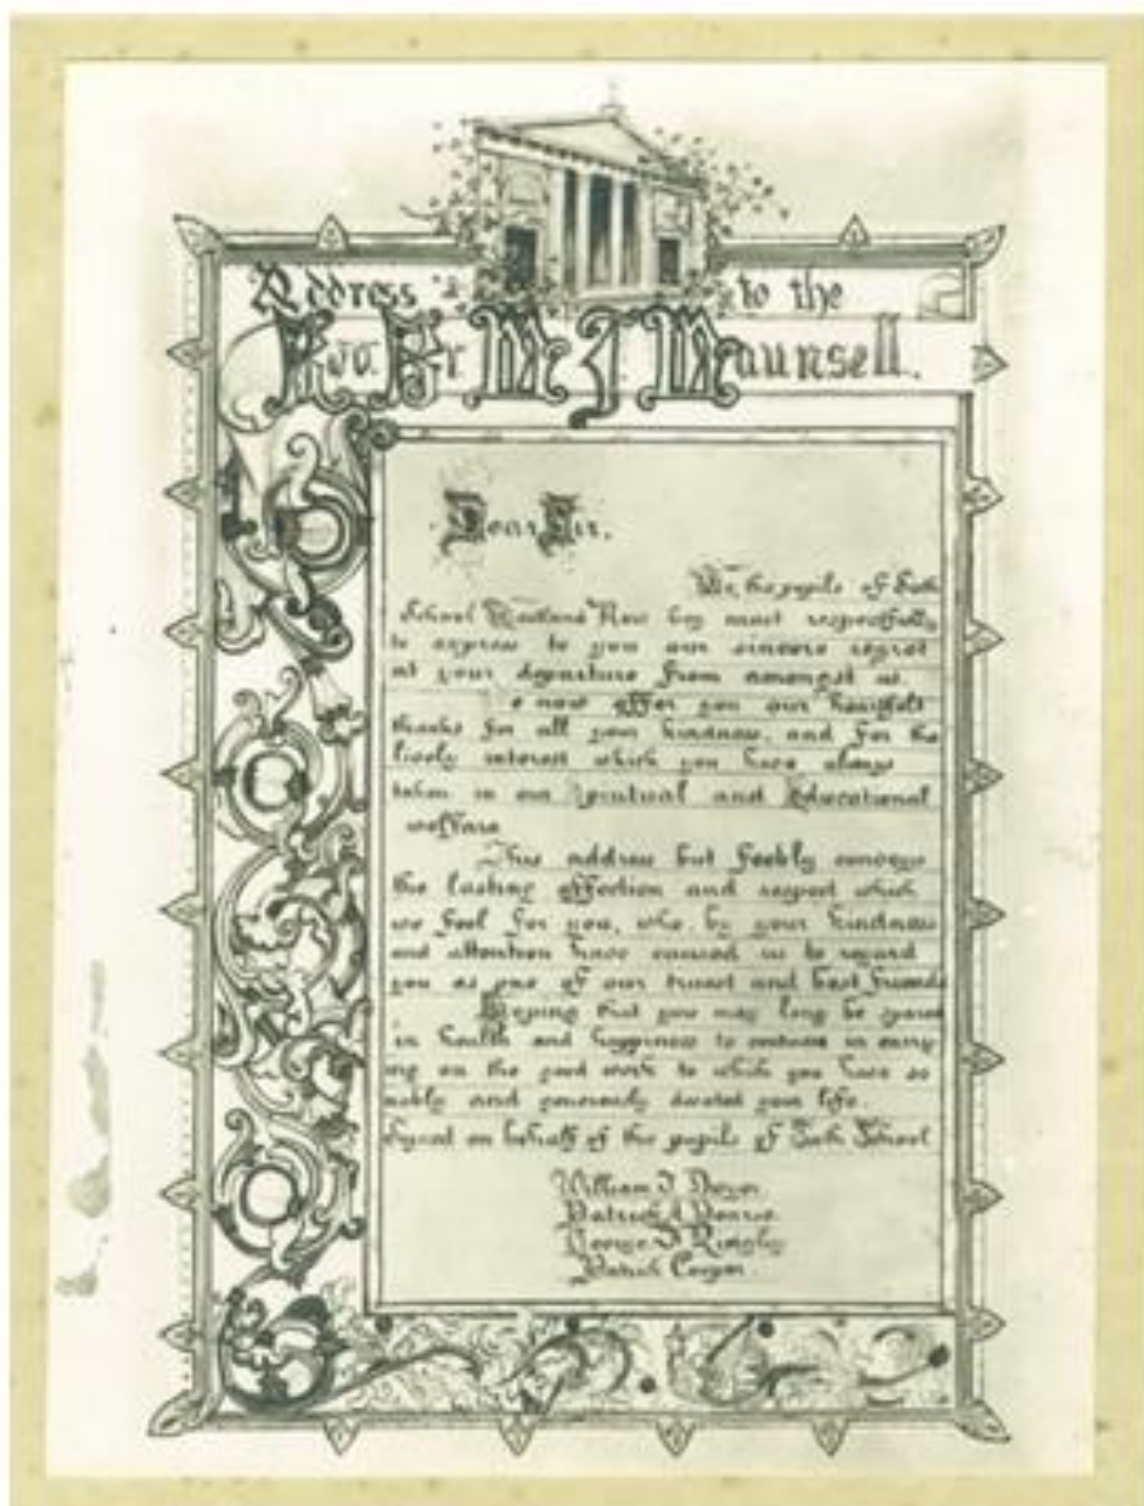 Address to the
Rev. Fr M J Maunsell.
Dear Sir.
We, the pupils of
School Rutland Row beg most respectfully
to express to you our sincere regret
at your departure from amongst us.
e now offer you our heartfelt
thanks for all your kindness, and for the
lively interest which you have always
taken in our Spiritual and Educational
welfare
This address but feebly conveys
the lasting affection and respect which
we feel for you, who by your kindness
and attention have caused us to regard
you as one of our truest and best friends
Hoping that you may long be spared
in health and happiness to continue in carry
ing on the good work to which you have so
nobly and generously devoted your life.
Signed on behalf of the pupils of School
William J
Patrick A
George
Patrick Cooper.